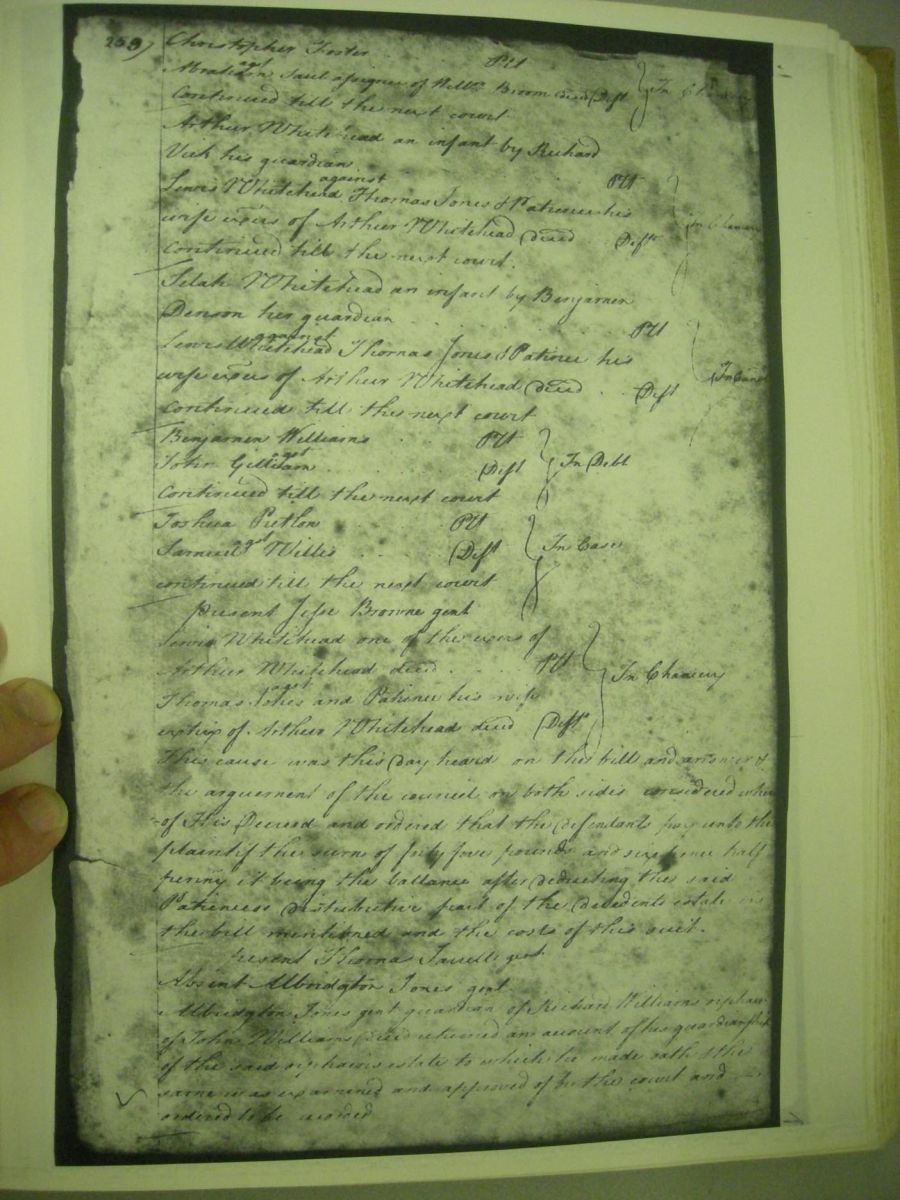 Christopher Foster Plt
agst
Abraham Saul assignee of Willm. Broom deced Deft In Chancery
Continued till the next court
Arthur Whitehead an infant by Richard
Vick his guardian Plt
against
Lewis Whitehead Thomas Jones & Patience his
wife exors of Arthur Whitehead deced Defts In Chancery
continued till the next court.
Selah Whitehead an infant by Benjamin
Denson her guardian Plt
against
Lewis Whitehead Thomas Jones & Patience his
wife exors of Arthur Whitehead deced Deft In Chancery
continued till the next court
Benjamin Williams Plt
agst
John Gilliam Deft In Debt
Continued till the next court
Joshua Plt
agst
Samuel Willis Deft In Case
continued till the next court
present Jesse Browne gent
Lewis Whitehead one of the exors of
Arthur Whitehead deced Plt In Chancery
agst
Thomas Jones and Patience his wife
extrix of Arthur Whitehead deced Defts
This cause was this day heard on the bill and answer &
the arguement of the council on both sides considered where
of It is Decread and ordered that the defendants pay unto the
plaintif the sum of pounds and six pence half
penny it being the ballance after deducting the said
Patiences distributive part of the decedents estate in
the bill mentioned and the costs of this suit.
present Thomas gent
Absent Albridgton Jones gent
Albridgton Jones gent guardian of Richard Williams orphan
of John Williams deced returned an account of his guardianship
of the said orphans estate to which he made oath & the
same was examined and approved of by the court and
ordered to be recorded